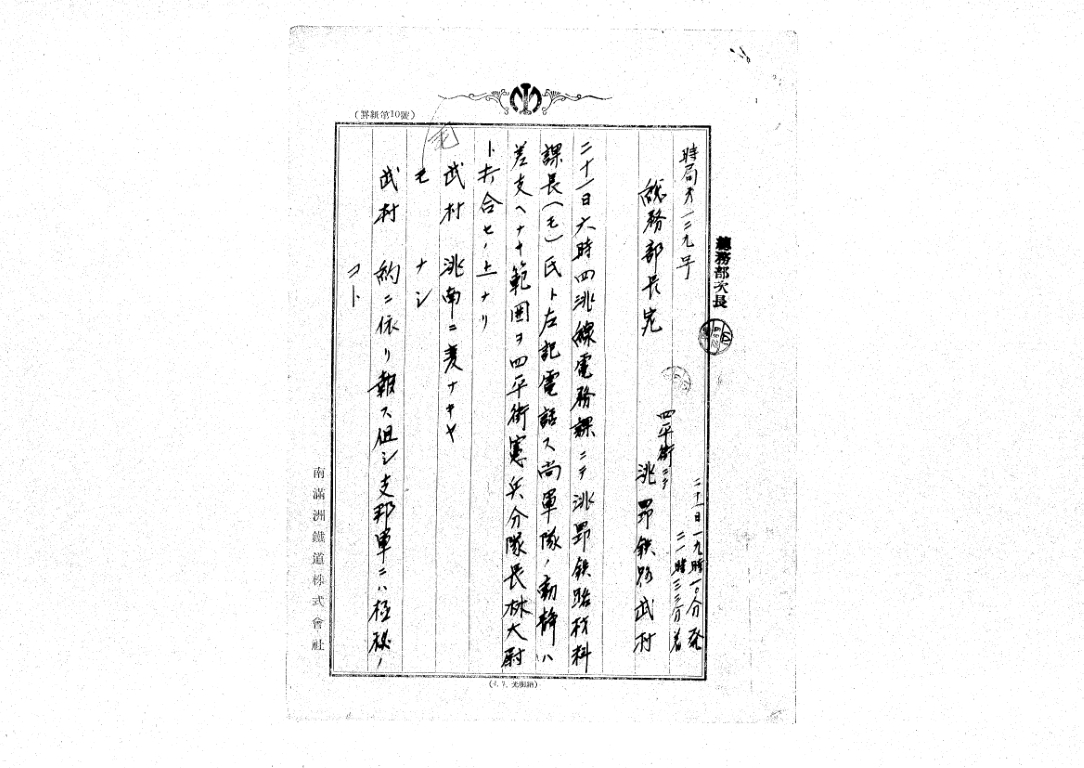 (罫紙第10號)
總務部次長
時局才一二九号
二十一日一九時一〇分発
二一時三三分着
總務部長宛
四平街ニテ
洮昻鉄路武村
二十一日六時四洮線電務課ニテ洮昻鉄路材料
課長(モ)氏ト左記電話ス尚軍隊ノ動静ハ
差支ヘナキ範囲ヲ四平街憲兵分隊長林大尉
ト打合セノ上ナリ
武村 洮南ニ変ナキヤ
モ ナシ
武村 約ニ依リ報ス但シ支那軍ニハ極秘ノ
コト
南滿洲鐵道株式會社